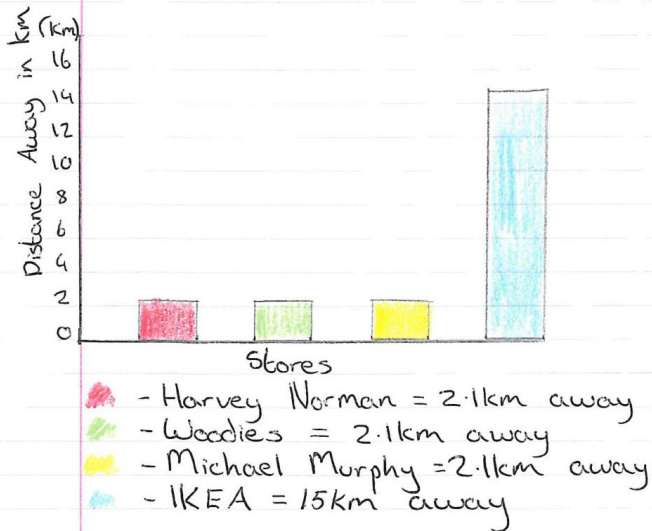 Distance Away in km
(km)
16
14
12
10
8
6
4
2
0
Stores
- Harvey Norman = 2.1km away
- Woodies = 2.1km away
- Michael Murphy = 2.1km away
- IKEA = 15km away